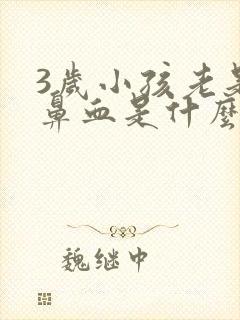 3歲小孩老是
鼻血是什麼
魏继中